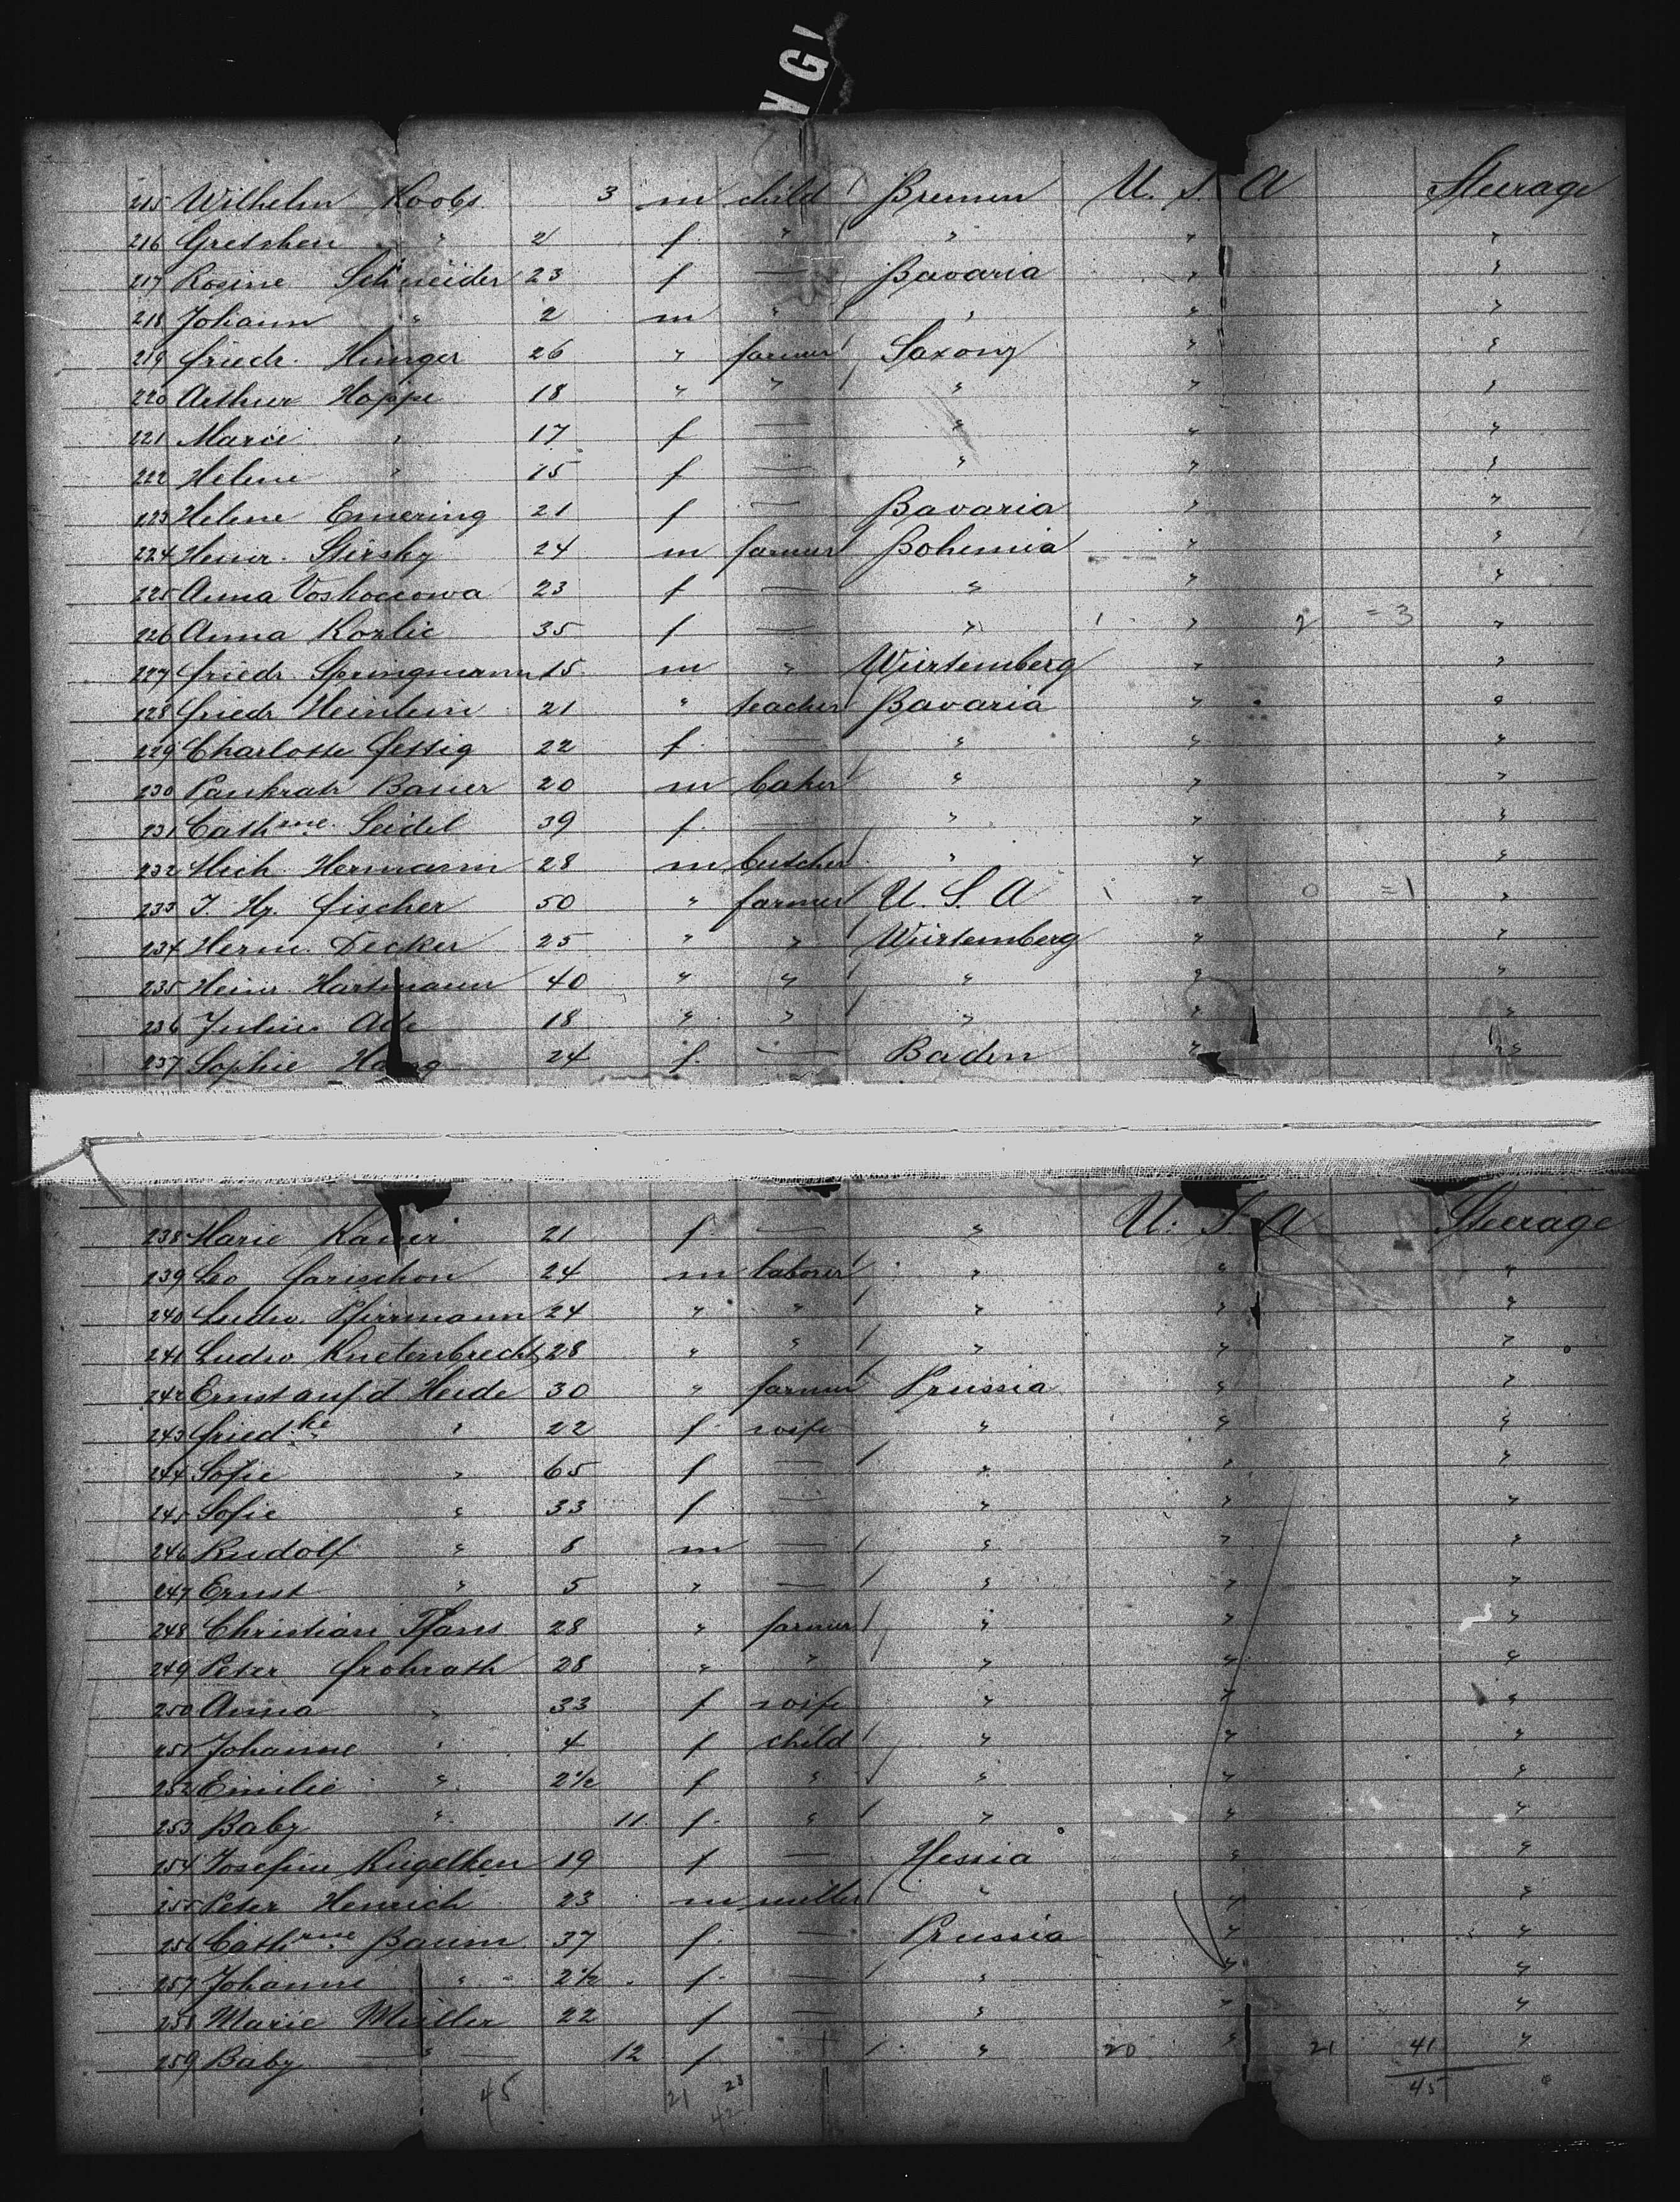 215 Wilhelm Koobs 3 m child Bremen U. S. A Steerage
216 Gretchen " 2 f. " " " "
217 Rosine Schneider 23 f — Bavaria " "
218 Johann " 2 m " " " "
219 Friedr. Hunger 26 " farmer Saxony " "
220 Arthur Hoppe 18 " " " " "
221 Marie " 17 f — " " "
222 Helene " 15 f — " " "
223 Helene Emering 21 f — Bavaria " "
224 Heinr. Stirsky 24 m farmer Bohemia " "
225 Anna 23 f — " " "
226 Anna Kozlic 35 f — " 1 " 2 = 3 "
227 Friedr. Springmann 15 m " Würtemberg " "
228 Friedr Heinlein 21 " teacher Bavaria " "
229 Charlotte Fettig 22 f. — " " "
230 Pankratz Bauer 20 m baker " " "
231 Cathrine Seidel 39 f. — " " "
232 Mich. Hermann 28 m butcher " " "
233 J. Hg. Fischer 50 " farmer U. S. A 1 " 0 =1 "
234 Herm. Decker 25 " " Würtemberg " "
235 Heinr. Hartmann 40 " " " " "
236 Julius Ade 18 " " " " "
237 Sophie Haug 24 f. — Baden " "
238 Marie Kaiser 21 f. — " U. S. A Steerage
239 Leo Farischon 24 m laborer " " "
240 Ludw. Pfirrmann 24 " " " " "
241 Ludw Knetenbrecht 28 " " " " "
242 Ernst auf d. Heide 30 " farmer Prussia " "
243 Fried.ke " 22 f wife " " "
244 Sofie " 65 f — " " "
245 Sofie " 33 f — " " "
246 Rudolf " 8 m — " " "
247 Ernst " 5 " — " " "
248 Christian 28 " farmer " " "
249 Peter Frohrath 28 " " " " "
250 Anna " 33 f wife " " "
251 Johanne " 4 f child " " "
252 Emilie " 2½ f " " " "
253 Baby " 11. f. " " " "
254 Josefine Kügelken 19 f — Hessia " "
255 Peter Henrich 23 m miller " " "
256 Cathrine Baum 37 f. — Prussia " "
257 Johanne " 2½ f. — " " "
258 Marie Müller 22 f — " " "
259 Baby " 12 f " 20 " 21 41 "
45 21 23 45
42